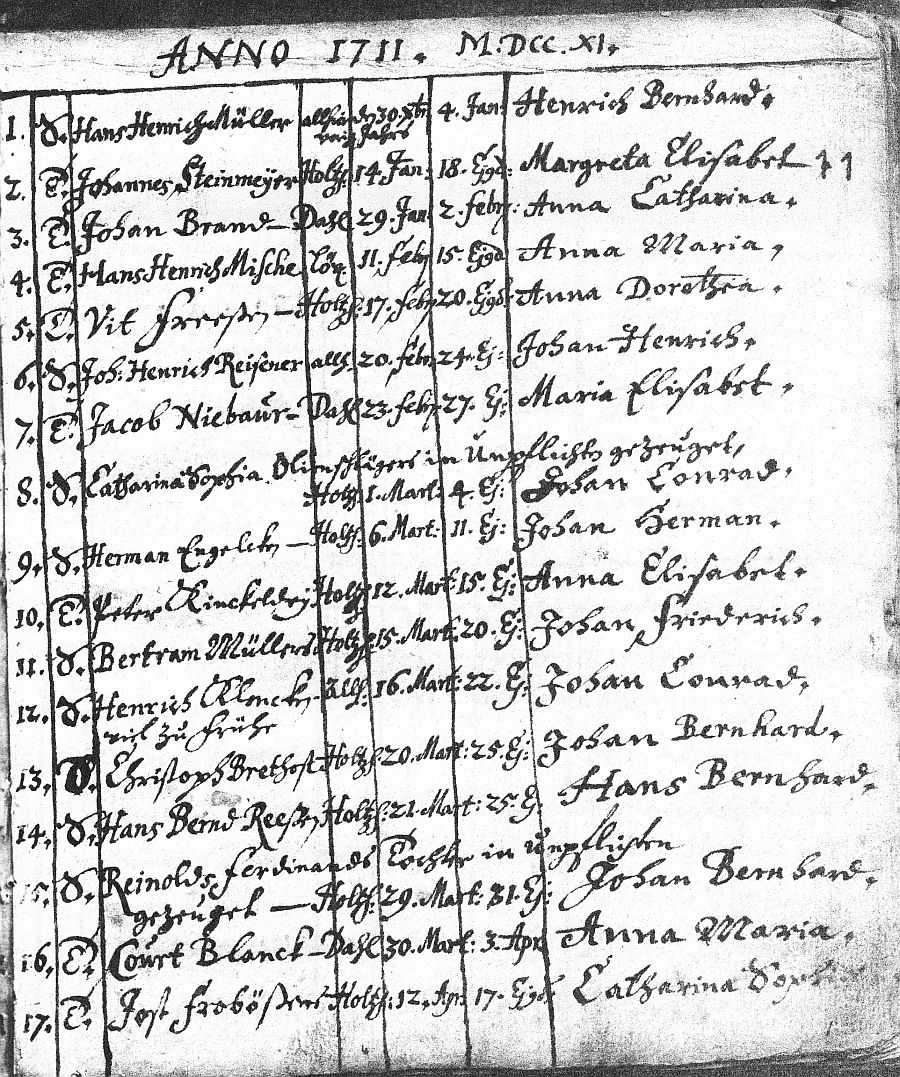 ANNO 1711. M.DCC.XI.
1. S. Hans Henrich Müller allhir d. 30. Xbr 4. Jan: Henrich Bernhard.
vorig Jahrs
2. T. Johannes Steinmeyer Holtzh: 14. Jan: 18. Ejgd: Margreta Elisabet
3. T. Johan Brand - Dahl 29. Jan: 2. febr: Anna Catharina.
4. T. Hans Henrich Mische 11. feb: 15. Ejgd Anna Maria.
5. T. Vit Freesen - Holtzh: 17. feb: 20. Ejgd: Anna Dorothea.
6. S. Joh: Henrich Reisener allh: 20. febr: 24. Ej: Johan Henrich.
7. T. Jacob Niebaur - Dahl 23. feb: 27. Ej: Maria Elisabet.
8. S. Catharina Sophia Olienschlägers in Unpflichten gezeuget,
Holtzh: 1. Mart: 4. Ej: Johan Conrad.
9. S. Herman Engelcken - Holtzh: 6. Mart: 11. Ej: Johan Herman.
10. T. Peter Kinckeldey Holtzh: 12. Mart: 15. Ej: Anna Elisabet.
11. S. Bertram Müllers Holtzh: 15. Mart: 20. Ej: Johan Friederich.
12. S. Henrich Klencken - Allh: 16. Mart: 22. Ej: Johan Conrad.
viel zu frühe
13. Christoph Brethost Holtzh: 20. Mart: 25. Ej: Johan Bernhard.
14. S. Hans Bernd Reesen Holtzh: 21. Mart: 25. Ej: Hans Bernhard.
15. S. Reinolds Ferdinands Tochter in Unpflichten
gezeuget — Holtzh: 29. Mart: 31. Ej: Johan Bernhard.
16. T. Court Blanck - Dahl 30. Mart: 3. Apr: Anna Maria.
17. T. Jost Frobösens Holtzh: 12. Apr: 17. Ejgd: Catharina